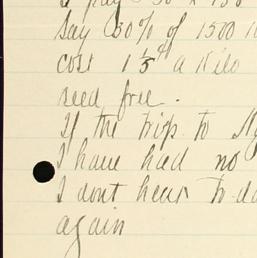 a pay
Say 30% of 1500 
cost 1 1/5 a Kilo
seed free.
If the trip to
I have had no
I dont hear to da
again